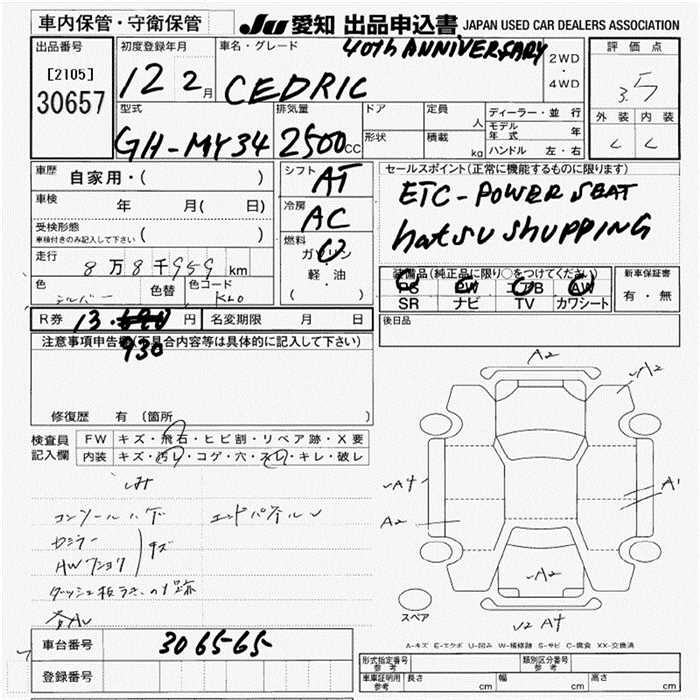 車内保管・守衛保管
JU 愛知 出品申込書 JAPAN USED CAR DEALERS ASSOCIATION
出品番号
[2105]
30657
初度登録年月
12 2月
車名・グレード
40th ANNIVERSARY
CEDRIC
2WD
・
4WD
評価点
3.5
外装 内装
C C
型式
GH-MY34
排気量
2500cc
ドア
形状
定員 人
積載 kg
ディーラー・並行
モデル年式 年
ハンドル 左・右
車歴 自家用・( )
車検 年 月( 日)
受検形態
車検付きのみ記入して下さい ( )
走行 8万8千959km
色 シルバー 色替 色コード KL0
シフト AT
冷房 AC
燃料
ガソリン
軽・油
( )
セールスポイント(正常に機能するものに限ります)
ETC-POWER SEAT
hatsu shupping
装備品(純正品に限り○をつけてください)
PS PW AB AW
SR ナビ TV カワシート
新車保証書
有・無
R券 13. 円 名変期限 月 日
930
後日品
注意事項申告欄(不具合内容等は具体的に記入して下さい)
修復歴 有(箇所 )
検査員記入欄
FW キズ・飛石・ヒビ割・リペア跡・X要
内装 キズ・汚レ・コゲ・穴・スレ・キレ・破レ
コンソールハゲ エンドパネル
AW
キズ
A2
A2
A4
A2
A1
A2
A4
スペア
A-キズ E-エクボ U-凹み W-補修跡 S-サビ C-腐食 XX-交換済
車台番号 306565
登録番号
形式指定番号 参考
類別区分番号 参考
車庫証明用 参考 長さ cm 幅 cm 高さ cm